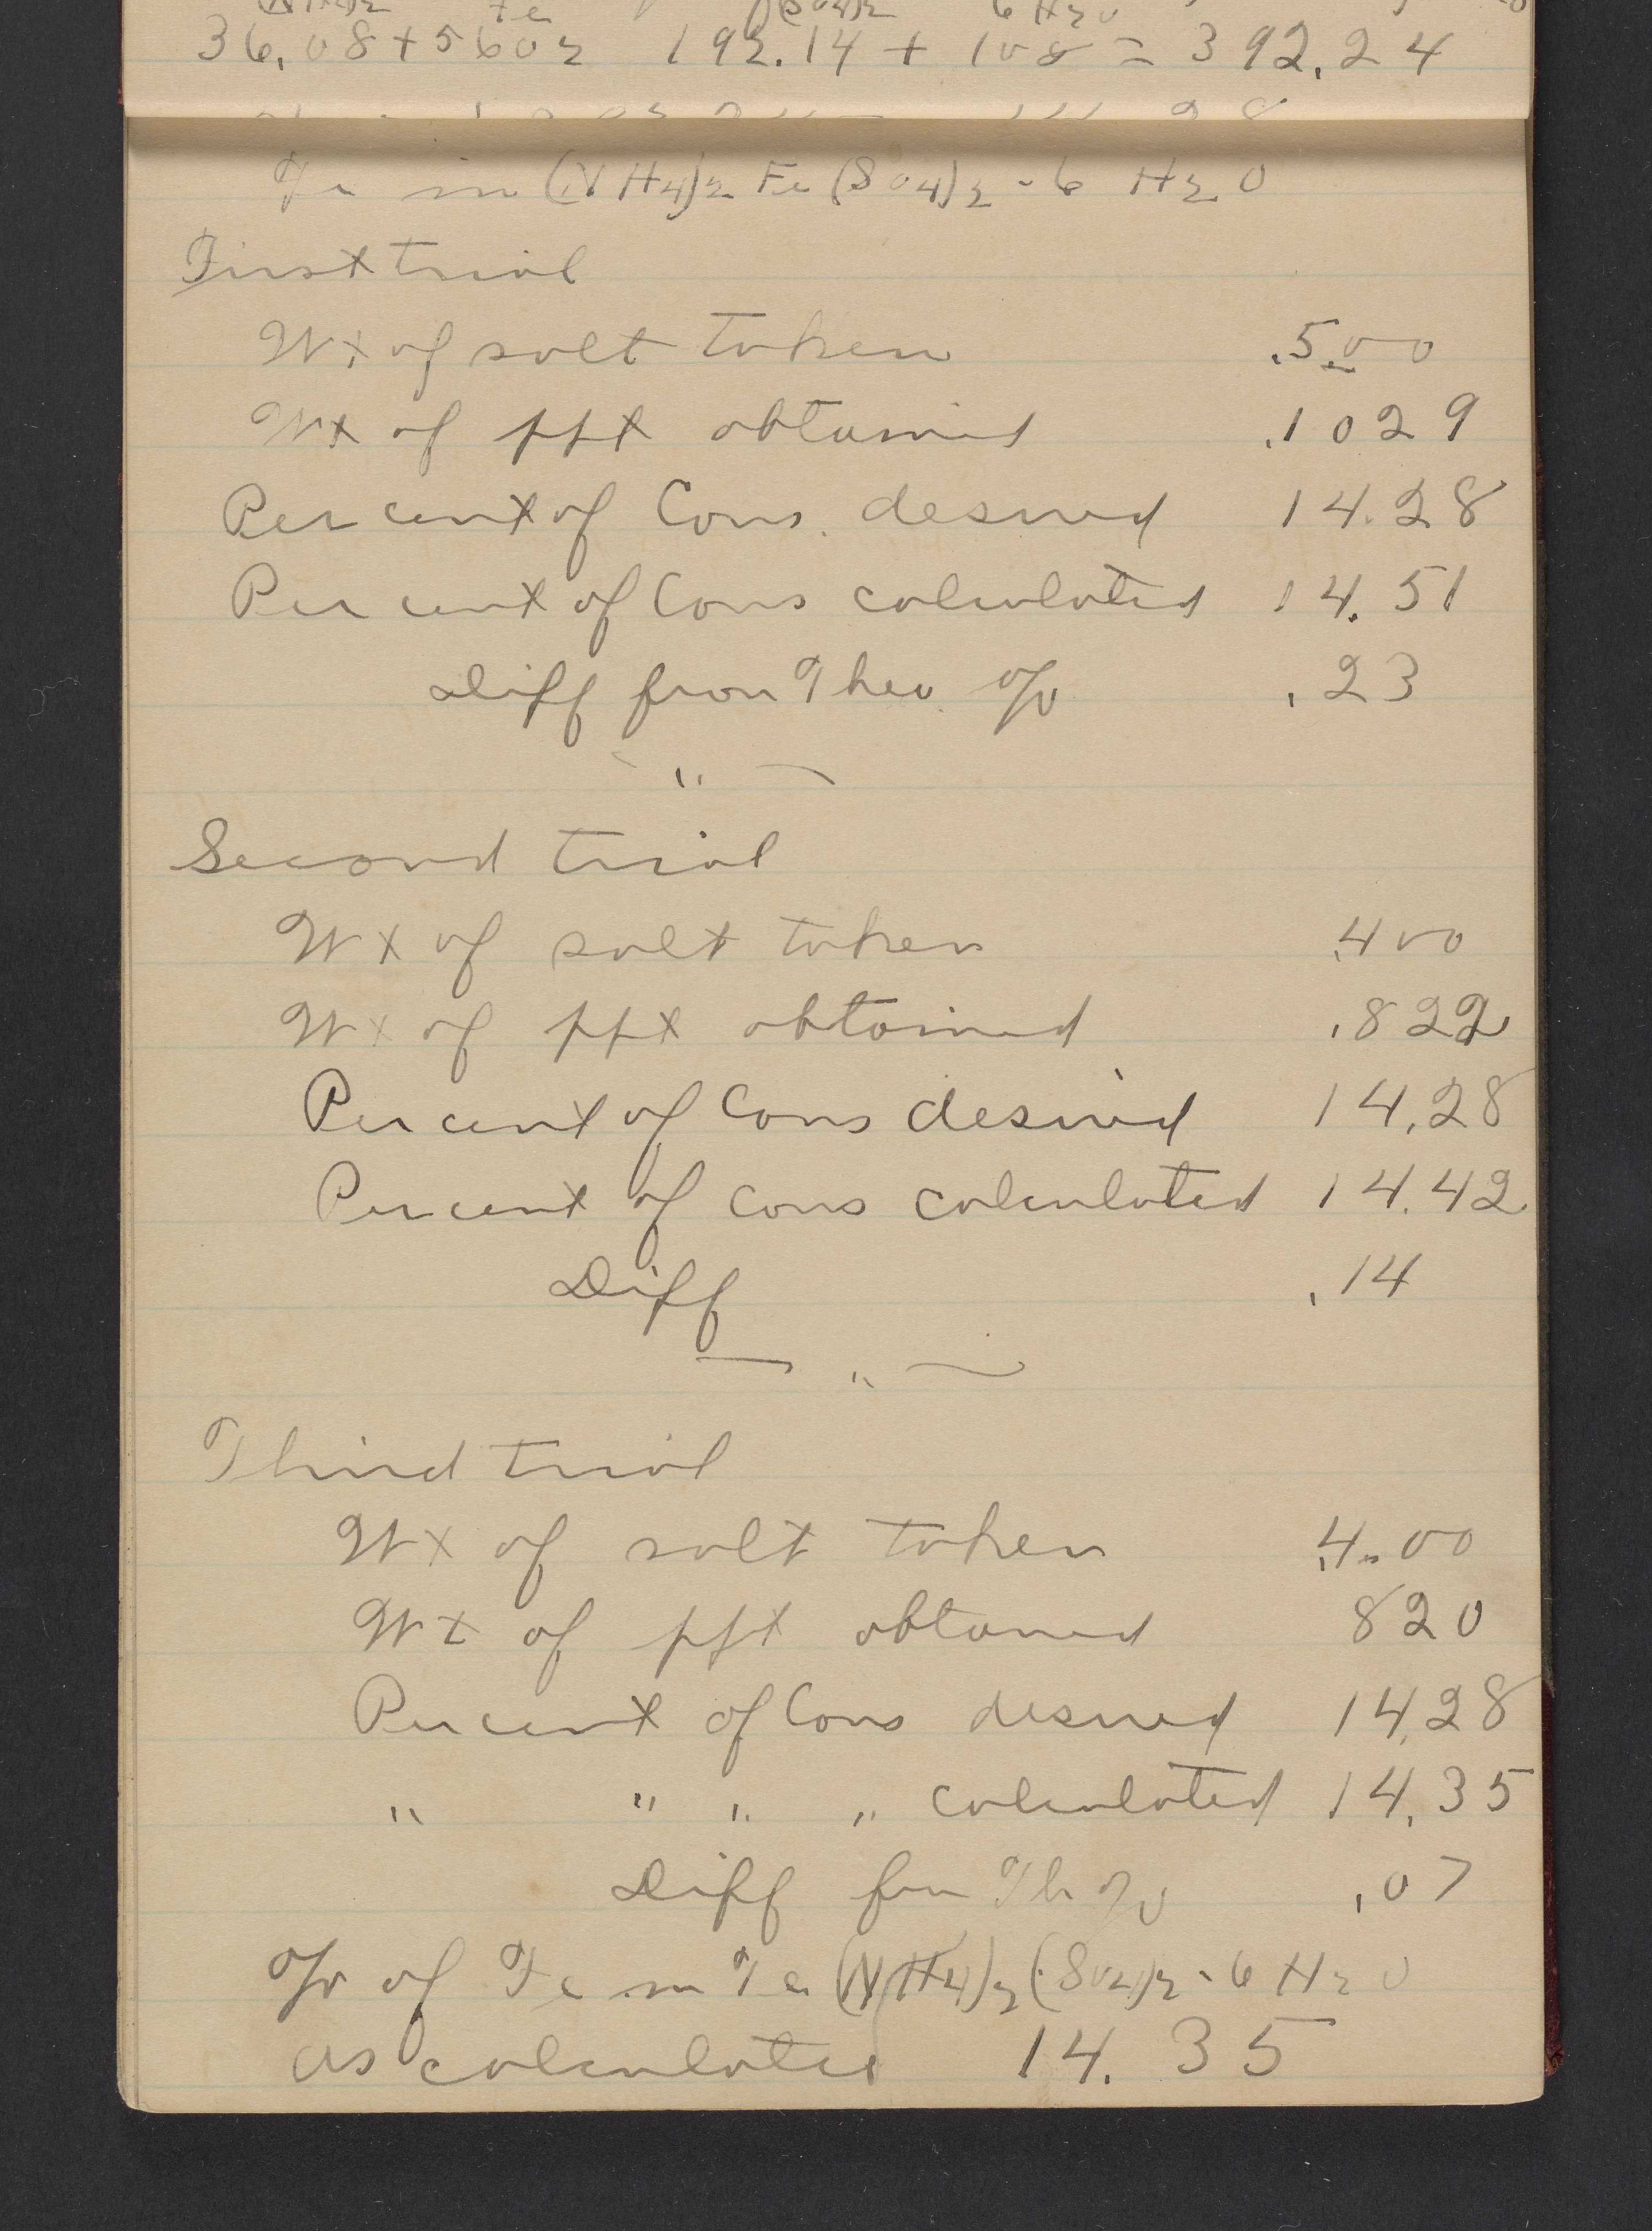 (NH4)2 Fe (SO4)2 6 H2O
36.08 + 5602 192.14 + 108 = 392.24
Fe in (NH4)2 Fe (SO4)2 - 6 H2O
First trial
Wt of salt taken .500
Wt of ppt obtained .1029
Per cent of Cons. desired 14.28
Per cent of Cons calculated 14.51
Diff from Theo. % .23
"
Second trial
Wt of salt taken .400
Wt of ppt obtained .822
Per cent of Cons desired 14.28
Per cent of cons calculated 14.42
Diff .14
"
Third trial
Wt of salt taken .400
Wt of ppt obtained 820
Per cent of Cons desired 14.28
" " " " calculated 14.35
Diff from Th % .07
% of Fe in Fe (NH4)2 (SO4)2 - 6 H2O
as calculated 14.35